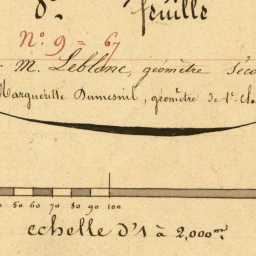 feuille
N.° 9 = 67
M. Leblanc, géomètre Seco
Margueritte Dumesnil, géomètre de 1.e cla
50 60 70 80 90 100
echelle d'1 à 2,000.m